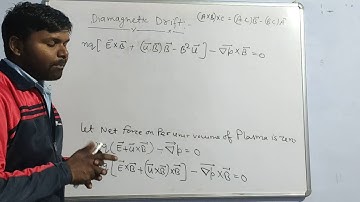 Diamagnetic Drift: (A×B)×C = (A·C)B - (B·C)A
nq[E⃗×B⃗ + (u⃗·B⃗)B⃗ - B²u⃗] - ∇⃗p×B⃗ = 0
Let Net force on Per unit volume of Plasma is zero
(E⃗+u⃗×B⃗) - ∇⃗p = 0
[E⃗×B⃗+(u⃗×B⃗)×B⃗] - ∇⃗p×B⃗ = 0